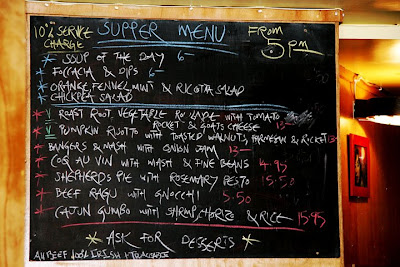 10% SERVICE CHARGE
SUPPER MENU
FROM 5pm
* SOUP OF THE DAY 6-
* FOCCACIA & DIPS 6-
* ORANGE, FENNEL, MINT & RICOTTA SALAD
* CHICKPEA SALAD
* V ROAST ROOT VEGETABLE ROULADE WITH TOMATO
ROCKET & GOATS CHEESE 13-
* V PUMPKIN RISOTTO WITH TOASTED WALNUTS, PARMESAN & ROCKET 13-
* BANGERS & MASH WITH ONION JAM 13-
* COQ AU VIN WITH MASH & FINE BEANS 14.95
* SHEPHERDS PIE WITH ROSEMARY PESTO 15.50
* BEEF RAGU WITH GNOCCHI 5.50
* CAJUN GUMBO WITH SHRIMP, CHORIZO & RICE 15.95
* ASK FOR DESSERTS *
All BEEF 100% IRISH & TRACEABLE